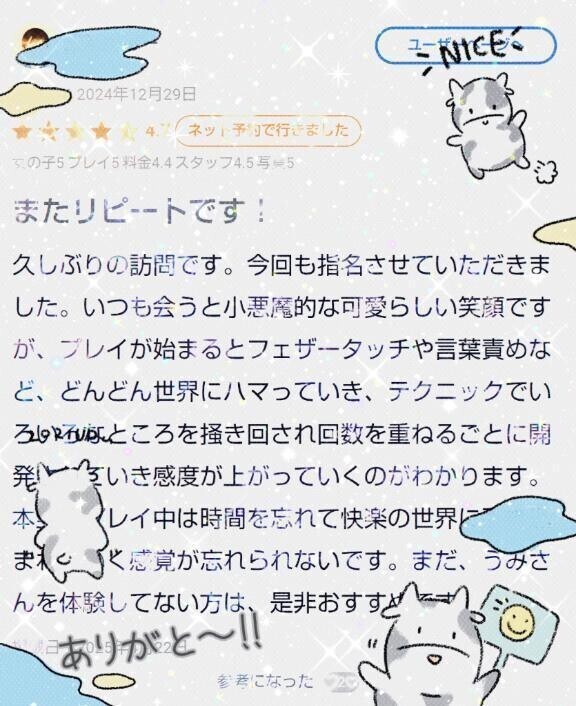 ユーザーページへ
NICE
2024年12月29日
4.7 ネット予約で行きました
女の子5 プレイ5 料金4.4 スタッフ4.5 写真5
またリピートです！
久しぶりの訪問です。今回も指名させていただきま
した。いつも会うと小悪魔的な可愛らしい笑顔です
が、プレイが始まるとフェザータッチや言葉責めな
ど、どんどん世界にハマっていき、テクニックでい
ろ ところを掻き回され回数を重ねるごとに開
発 いき感度が上がっていくのがわかります。
本 プレイ中は時間を忘れて快楽の世界に
まれ く感覚が忘れられないです。まだ、うみさ
んを体験してない方は、是非おすすめです
ありがと〜!!
参考になった